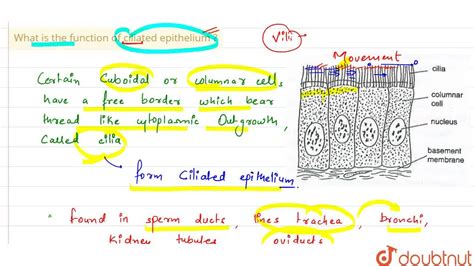 What is the function of ciliated epithelium?
Villi
Movement
Certain Cuboidal or columnar cells
have a free border which bear
thread like cytoplasmic Outgrowth,
Called cilia
form Ciliated epithelium.
cilia
columnar
cell
nucleus
basement
membrane
* found in sperm ducts, lines trachea, bronchi,
kidney tubules oviducts
doubtnut